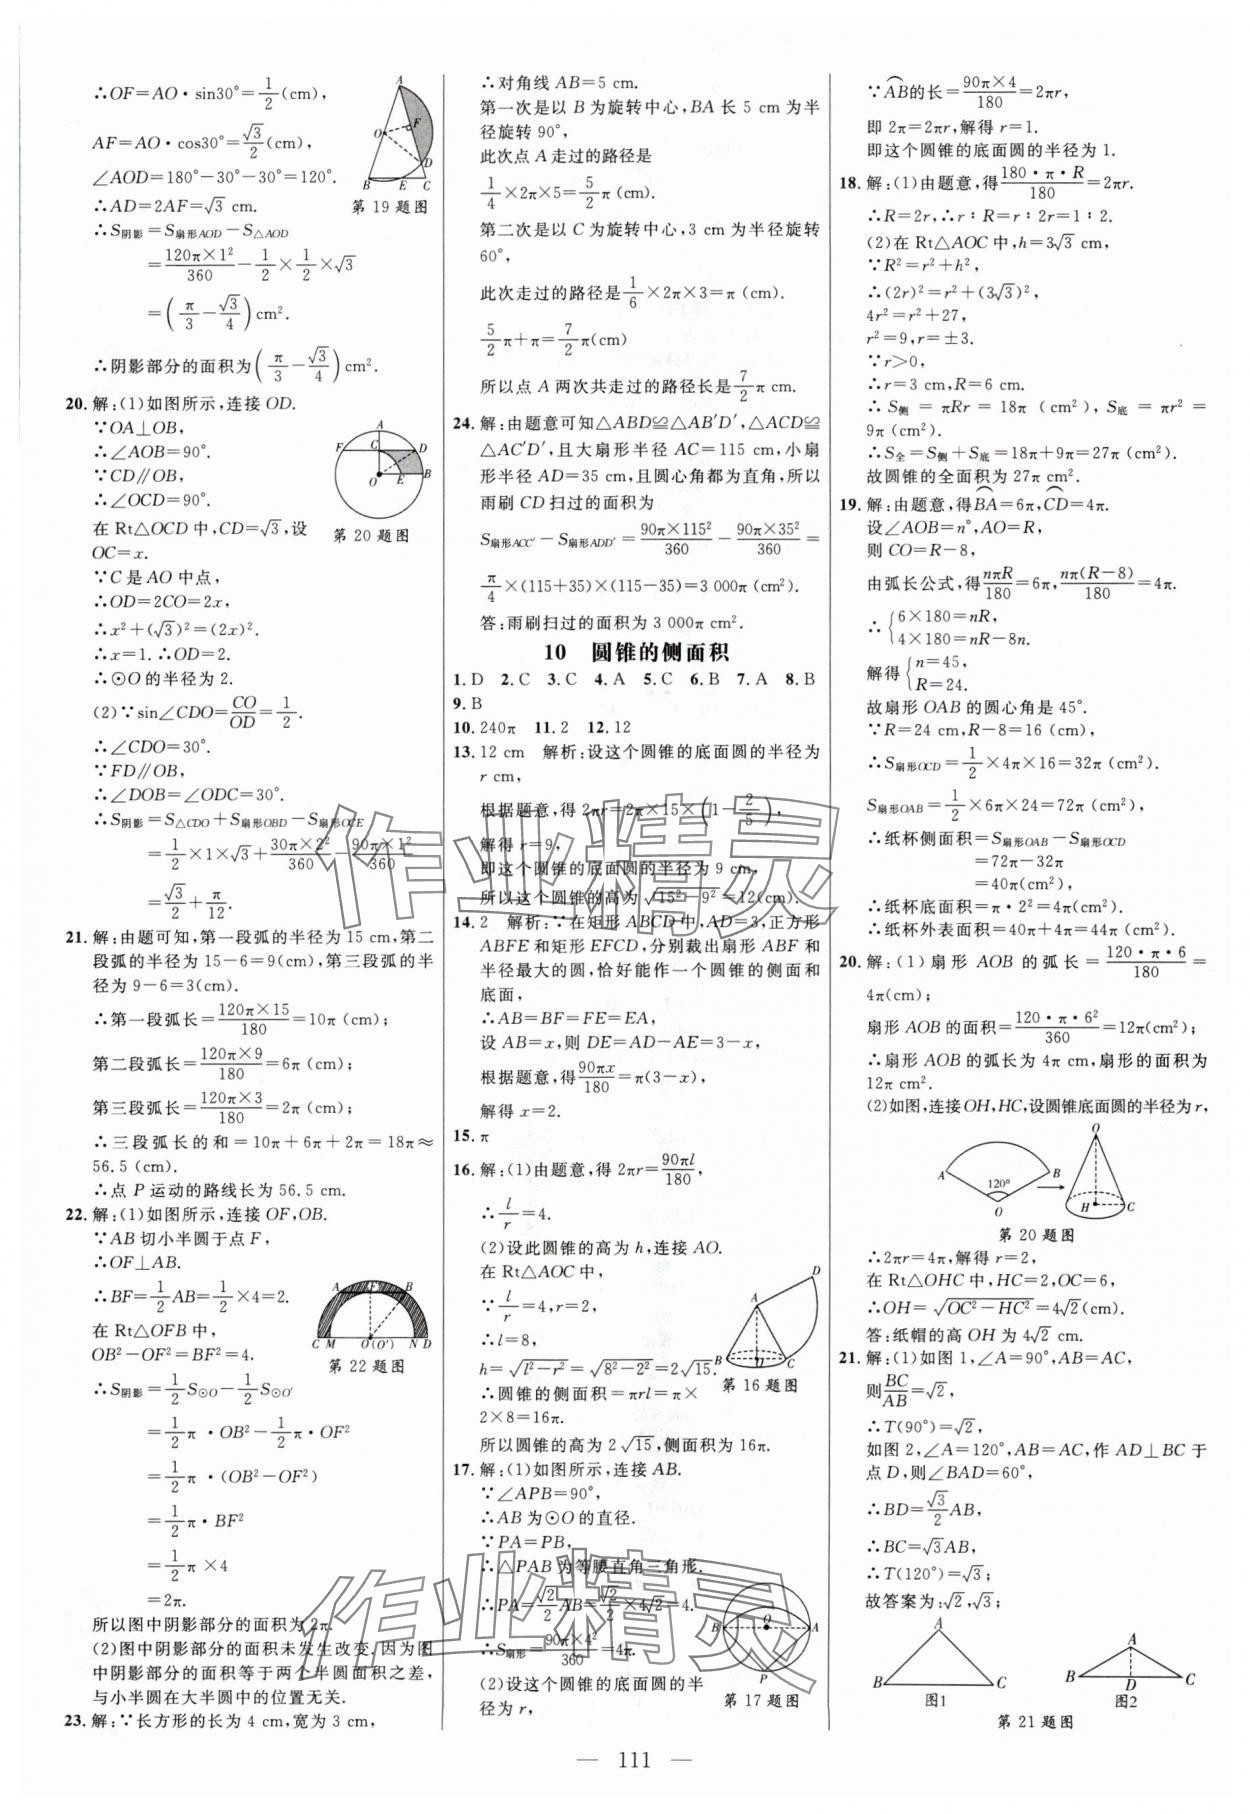 ∴OF=AO·sin30°=1/2(cm),
AF=AO·cos30°=√3/2(cm),
∠AOD=180°-30°-30°=120°.
∴AD=2AF=√3 cm.
第19题图
∴S阴影=S扇形AOD-S△AOD
=120π×1²/360-1/2×1/2×√3
=(π/3-√3/4)cm².
∴阴影部分的面积为(π/3-√3/4)cm².
20.解:(1)如图所示,连接OD.
∵OA⊥OB,
∴∠AOB=90°.
∵CD∥OB,
∴∠OCD=90°.
在Rt△OCD中,CD=√3,设
OC=x.
第20题图
∵C是AO中点,
∴OD=2CO=2x,
∴x²+(√3)²=(2x)².
∴x=1.∴OD=2.
∴⊙O的半径为2.
(2)∵sin∠CDO=CO/OD=1/2.
∴∠CDO=30°.
∵FD∥OB,
∴∠DOB=∠ODC=30°.
∴S阴影=S△CDO+S扇形OBD-S扇形OCE
=1/2×1×√3+30π×2²/360-90π×1²/360
=√3/2+π/12.
21.解:由题可知,第一段弧的半径为15 cm,第二
段弧的半径为15-6=9(cm),第三段弧的半
径为9-6=3(cm).
∴第一段弧长=120π×15/180=10π(cm);
第二段弧长=120π×9/180=6π(cm);
第三段弧长=120π×3/180=2π(cm);
∴三段弧长的和=10π+6π+2π=18π≈
56.5(cm).
∴点P运动的路线长为56.5 cm.
22.解:(1)如图所示,连接OF,OB.
∵AB切小半圆于点F,
∴OF⊥AB.
∴BF=1/2AB=1/2×4=2.
在Rt△OFB中,
OB²-OF²=BF²=4.
第22题图
∴S阴影=1/2S⊙O-1/2S⊙O′
=1/2π·OB²-1/2π·OF²
=1/2π·(OB²-OF²)
=1/2π·BF²
=1/2π×4
=2π.
所以图中阴影部分的面积为2π.
(2)图中阴影部分的面积未发生改变,因为图
中阴影部分的面积等于两个半圆面积之差,
与小半圆在大半圆中的位置无关.
23.解:∵长方形的长为4 cm,宽为3 cm,
∴对角线AB=5 cm.
第一次是以B为旋转中心,BA长5 cm为半
径旋转90°,
此次点A走过的路径是
1/4×2π×5=5/2π(cm).
第二次是以C为旋转中心,3 cm为半径旋转
60°,
此次走过的路径是1/6×2π×3=π(cm).
5/2π+π=7/2π(cm)
所以点A两次共走过的路径长是7/2π cm.
24.解:由题意可知△ABD≌△AB′D′,△ACD≌
△AC′D′,且大扇形半径AC=115 cm,小扇
形半径AD=35 cm,且圆心角都为直角,所以
雨刷CD扫过的面积为
S扇形ACC′-S扇形ADD′=90π×115²/360-90π×35²/360=
π/4×(115+35)×(115-35)=3 000π(cm²).
答:雨刷扫过的面积为3 000π cm².
10 圆锥的侧面积
1.D 2.C 3.C 4.A 5.C 6.B 7.A 8.B
9.B
10.240π 11.2 12.12
13.12 cm 解析:设这个圆锥的底面圆的半径为
r cm,
根据题意,得2πr=2π×15×(1-2/5),
解得r=9,
即这个圆锥的底面圆的半径为9 cm,
所以这个圆锥的高为√(15²-9²)=12(cm).
14.2 解析:∵在矩形ABCD中,AD=3,正方形
ABFE和矩形EFCD,分别裁出扇形ABF和
半径最大的圆,恰好能作一个圆锥的侧面和
底面,
∴AB=BF=FE=EA,
设AB=x,则DE=AD-AE=3-x,
根据题意,得90πx/180=π(3-x),
解得x=2.
15.π
16.解:(1)由题意,得2πr=90πl/180,
∴l/r=4.
(2)设此圆锥的高为h,连接AO.
在Rt△AOC中,
∵l/r=4,r=2,
∴l=8,
h=√(l²-r²)=√(8²-2²)=2√15.
第16题图
∴圆锥的侧面积=πrl=π×
2×8=16π.
所以圆锥的高为2√15,侧面积为16π.
17.解:(1)如图所示,连接AB.
∵∠APB=90°,
∴AB为⊙O的直径.
∵PA=PB,
∴△PAB为等腰直角三角形.
∴PA=√2/2AB=√2/2×4√2=4.
∴S扇形=90π×4²/360=4π.
(2)设这个圆锥的底面圆的半
径为r,
第17题图
∵AB的长=90π×4/180=2πr,
即2π=2πr,解得r=1.
即这个圆锥的底面圆的半径为1.
18.解:(1)由题意,得180·π·R/180=2πr.
∴R=2r,∴r∶R=r∶2r=1∶2.
(2)在Rt△AOC中,h=3√3 cm,
∵R²=r²+h²,
∴(2r)²=r²+(3√3)²,
4r²=r²+27,
r²=9,r=±3.
∵r>0,
∴r=3 cm,R=6 cm.
∴S侧=πRr=18π(cm²),S底=πr²=
9π(cm²).
∴S全=S侧+S底=18π+9π=27π(cm²).
故圆锥的全面积为27π cm².
19.解:由题意,得BA=6π,CD=4π.
设∠AOB=n°,AO=R,
则CO=R-8,
由弧长公式,得nπR/180=6π,nπ(R-8)/180=4π.
∴{6×180=nR,
4×180=nR-8n.
解得{n=45,
R=24.
故扇形OAB的圆心角是45°.
∵R=24 cm,R-8=16(cm).
∴S扇形OCD=1/2×4π×16=32π(cm²).
S扇形OAB=1/2×6π×24=72π(cm²).
∴纸杯侧面积=S扇形OAB-S扇形OCD
=72π-32π
=40π(cm²).
∴纸杯底面积=π·2²=4π(cm²).
∴纸杯外表面积=40π+4π=44π(cm²).
20.解:(1)扇形AOB的弧长=120·π·6/180=
4π(cm);
扇形AOB的面积=120·π·6²/360=12π(cm²);
∴扇形AOB的弧长为4π cm,扇形的面积为
12π cm².
(2)如图,连接OH,HC,设圆锥底面圆的半径为r,
第20题图
∴2πr=4π,解得r=2,
在Rt△OHC中,HC=2,OC=6,
∴OH=√(OC²-HC²)=4√2(cm).
答:纸帽的高OH为4√2 cm.
21.解:(1)如图1,∠A=90°,AB=AC,
则BC/AB=√2,
∴T(90°)=√2,
如图2,∠A=120°,AB=AC,作AD⊥BC于
点D,则∠BAD=60°,
∴BD=√3/2AB,
∴BC=√3AB,
∴T(120°)=√3;
故答案为:√2,√3;
图1 图2
第21题图
— 111 —
作业精灵
作业精灵